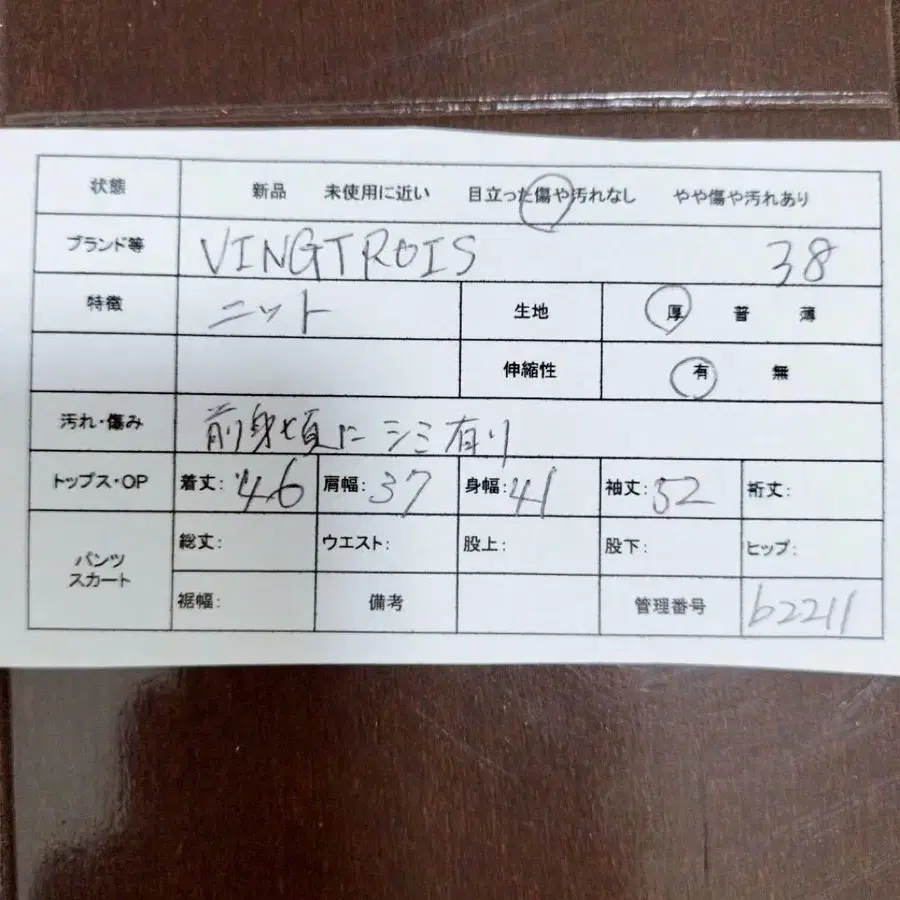 状態 新品 未使用に近い 目立った傷や汚れなし やや傷や汚れあり
ブランド等 VINGTROIS 38
特徴 ニット 生地 厚 普 薄
伸縮性 有 無
汚れ・傷み 前身頃に シミ有り
トップス・OP 着丈: 46 肩幅: 37 身幅: 41 袖丈: 52 裄丈:
パンツ スカート
総丈: ウエスト: 股上: 股下: ヒップ:
裾幅: 備考 管理番号 b2211